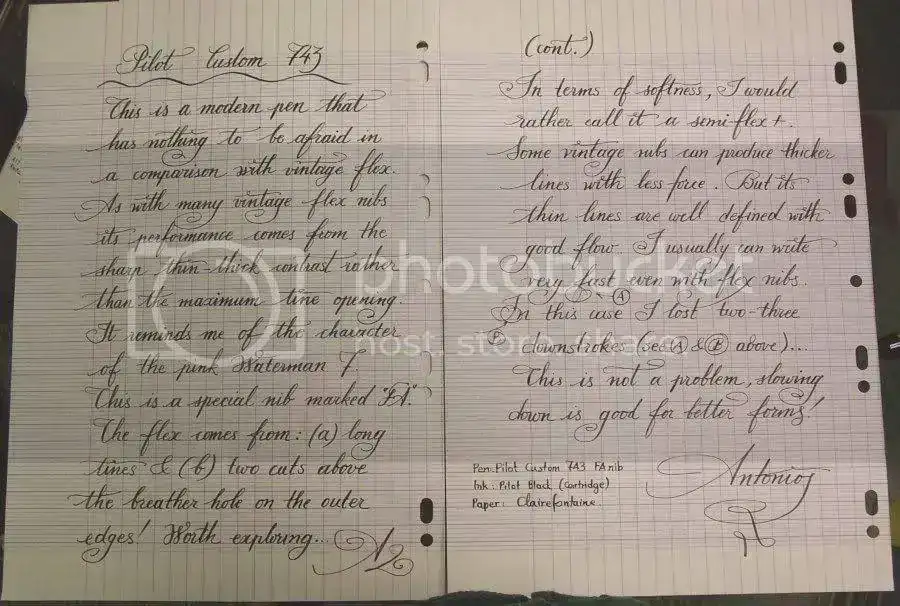 Pilot Custom 743
This is a modern pen that
has nothing to be afraid in
a comparison with vintage flex.
As with many vintage flex nibs
its performance comes from the
sharp thin-thick contrast rather
than the maximum tine opening.
It reminds me of the character
of the pink Waterman 7.
This is a special nib marked "FA".
The flex comes from: (a) long
tines & (b) two cuts above
the breather hole on the outer
edges! Worth exploring...
(cont.)
In terms of softness, I would
rather call it a semi-flex+.
Some vintage nibs can produce thicker
lines with less force. But its
thin lines are well defined with
good flow. I usually can write
very fast even with flex nibs.
A
In this case I lost two-three
B
downstrokes (see A & B above)....
This is not a problem, slowing
down is good for better forms!
Pen: Pilot Custom 743 FA nib
Ink: Pilot Black (Cartridge)
Paper: Clairefontaine.
Antonios
photobucket
host. store.